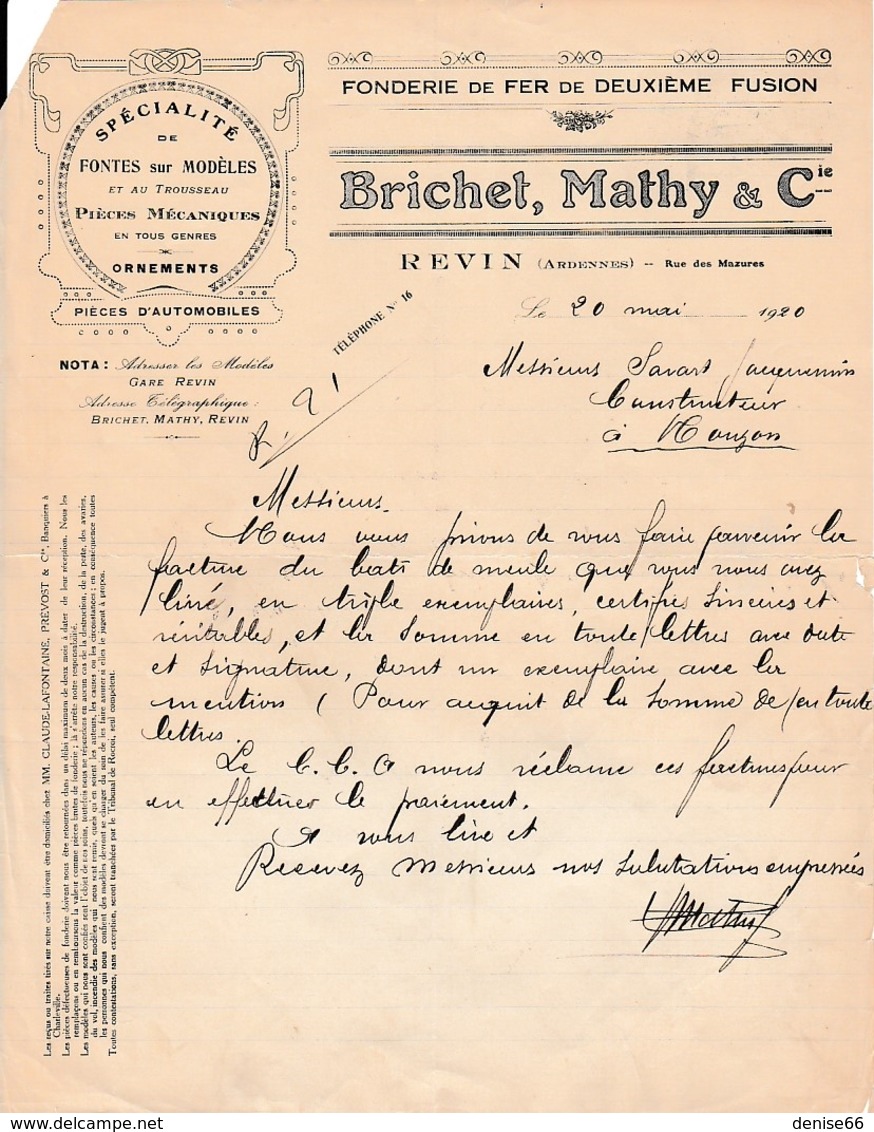 SPÉCIALITÉ
DE
FONTES sur MODÈLES
ET AU TROUSSEAU
PIÈCES MÉCANIQUES
EN TOUS GENRES
ORNEMENTS
PIÈCES D'AUTOMOBILES
NOTA : Adresser les Modèles
GARE REVIN
Adresse Télégraphique :
BRICHET, MATHY, REVIN
FONDERIE DE FER DE DEUXIÈME FUSION
Brichet, Mathy & Cie
REVIN (ARDENNES) -- Rue des Mazures
TÉLÉPHONE N° 16
Le 20 mai 1920
Messieurs Savart Jacquemin
Constructeur
à Nouzon
Messieurs.
Nous vous prions de vous faire parvenir la
facture du bati de meule que vous nous avez
livré, en triple exemplaires, certifiés sincères et
véritables, et la somme en toute lettres avec date
et signature, dont un exemplaire avec la
mention ( Pour acquit de la somme de / en toute
lettres.
Le C. C. O nous réclame ces factures pour
en effectuer le paiement.
A vous lire et
Recevez Messieurs nos salutations empressées
Mathy
Les reçus ou traites tirés sur notre caisse doivent être domiciliés chez MM. CLAUDE-LAFONTAINE, PRÉVOST & Cie, Banquiers à
Charleville.
Les pièces défectueuses de fonderie doivent nous être retournées dans un délai maximum de deux mois à dater de leur réception. Nous les
remplaçons ou en remboursons la valeur comme pièces brutes de fonderie ; là s'arrête notre responsabilité.
Les modèles qui nous sont confiés sont l'objet de nos soins, toutefois nous ne répondons en aucun cas de la destruction, de la perte, des avaries,
du vol, incendie des modèles qui nous sont remis, quels qu'en soient les auteurs, les causes ou les circonstances ; en conséquence toutes
les personnes qui nous confient des modèles devront se charger du soin de les faire assurer si elles le jugent à propos.
Toutes contestations, sans exception, seront tranchées par le Tribunal de Rocroi, seul compétent.
denise66